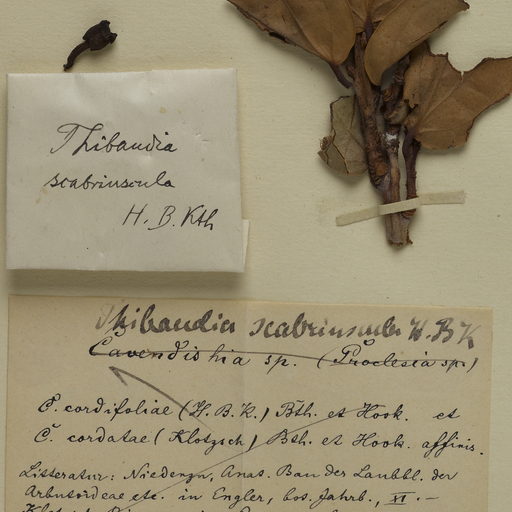 Thibaudia
scabriuscula
H. B. Kth
Thibaudia scabriuscula H. B K
Cavendishia sp. (Proclesia sp.)
C. cordifoliae (H. B. K.) Bth. et Hook. et
C. cordatae (Klotzsch) Bth. et Hook. affinis.
Litteratur: Niedenzu, Anat. Bau der Laubbl. der
Arbutoideae etc. in Engler, bot. Jahrb., XI. —